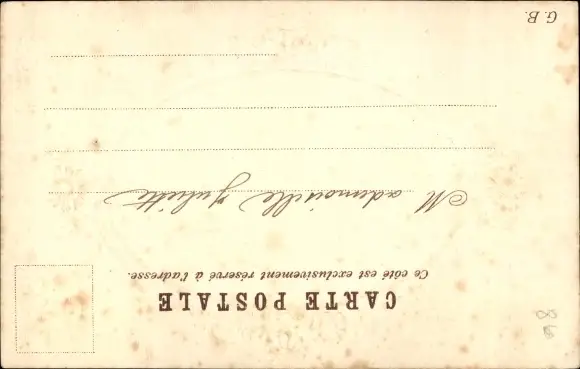 CARTE POSTALE
Ce côté est exclusivement réservé à l'adresse.
Mademoiselle Juliette
G. B.